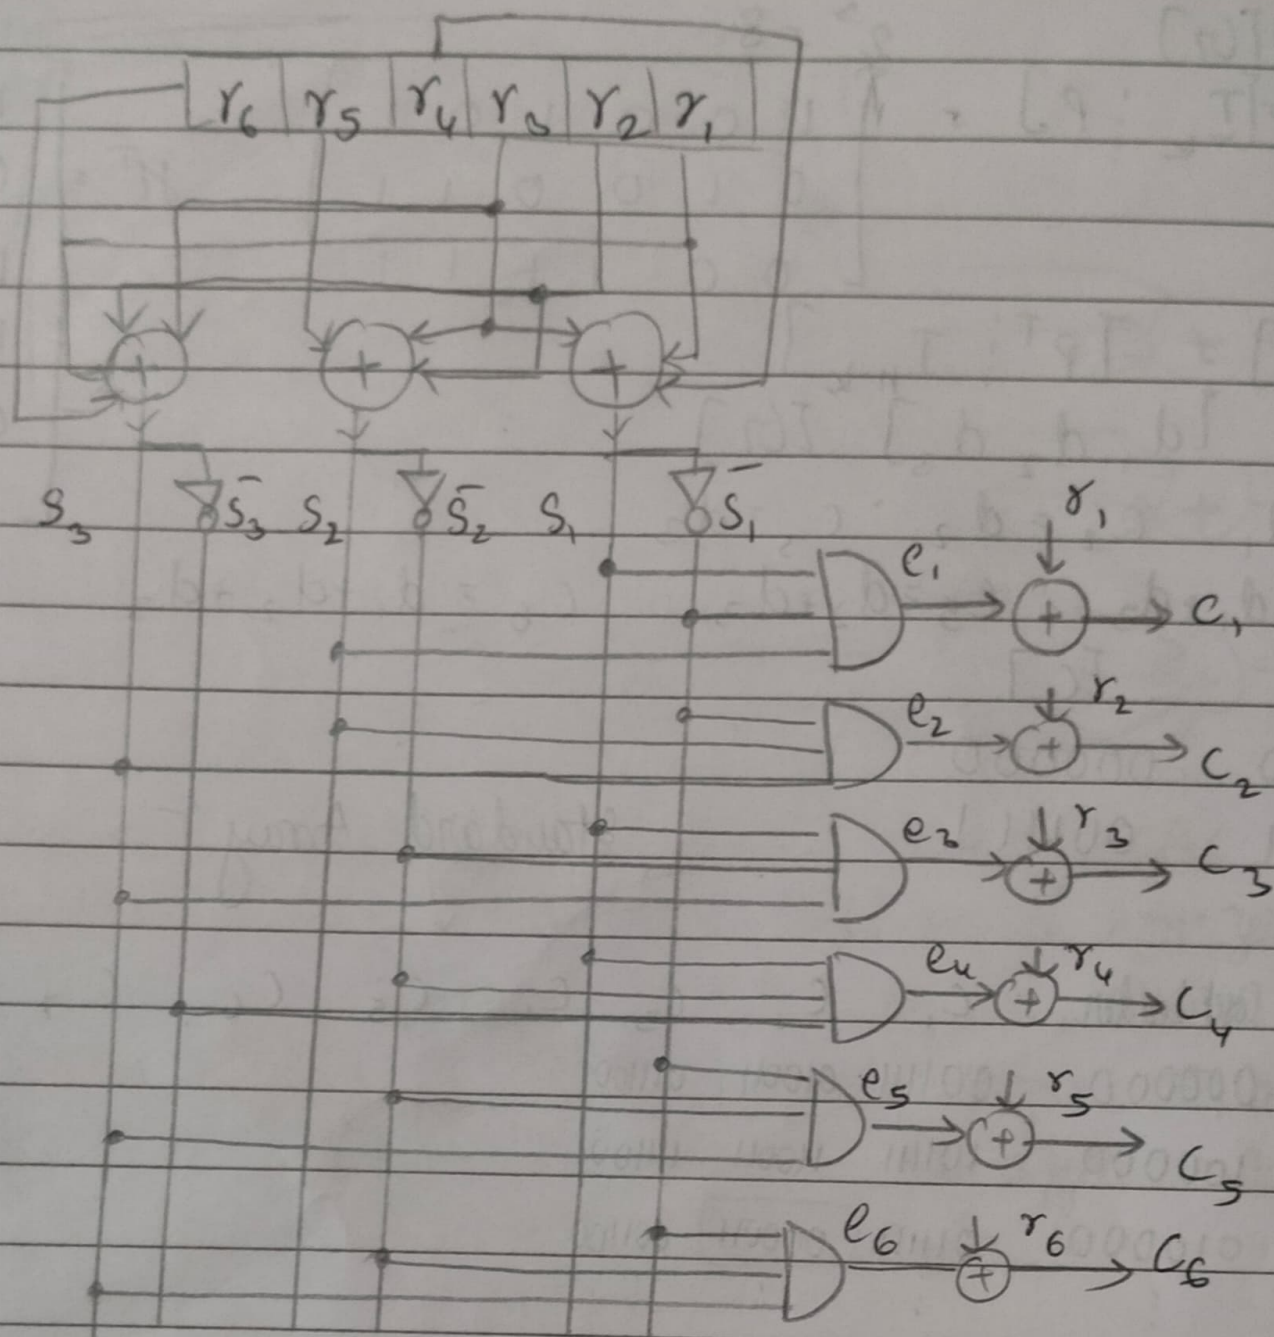 r₆ r₅ r₄ r₃ r₂ r₁
+ + +
S₃ S̄₃ S₂ S̄₂ S₁ S̄₁
r₁
e₁ + C₁
r₂
e₂ + C₂
r₃
e₃ + C₃
r₄
e₄ + C₄
r₅
e₅ + C₅
r₆
e₆ + C₆